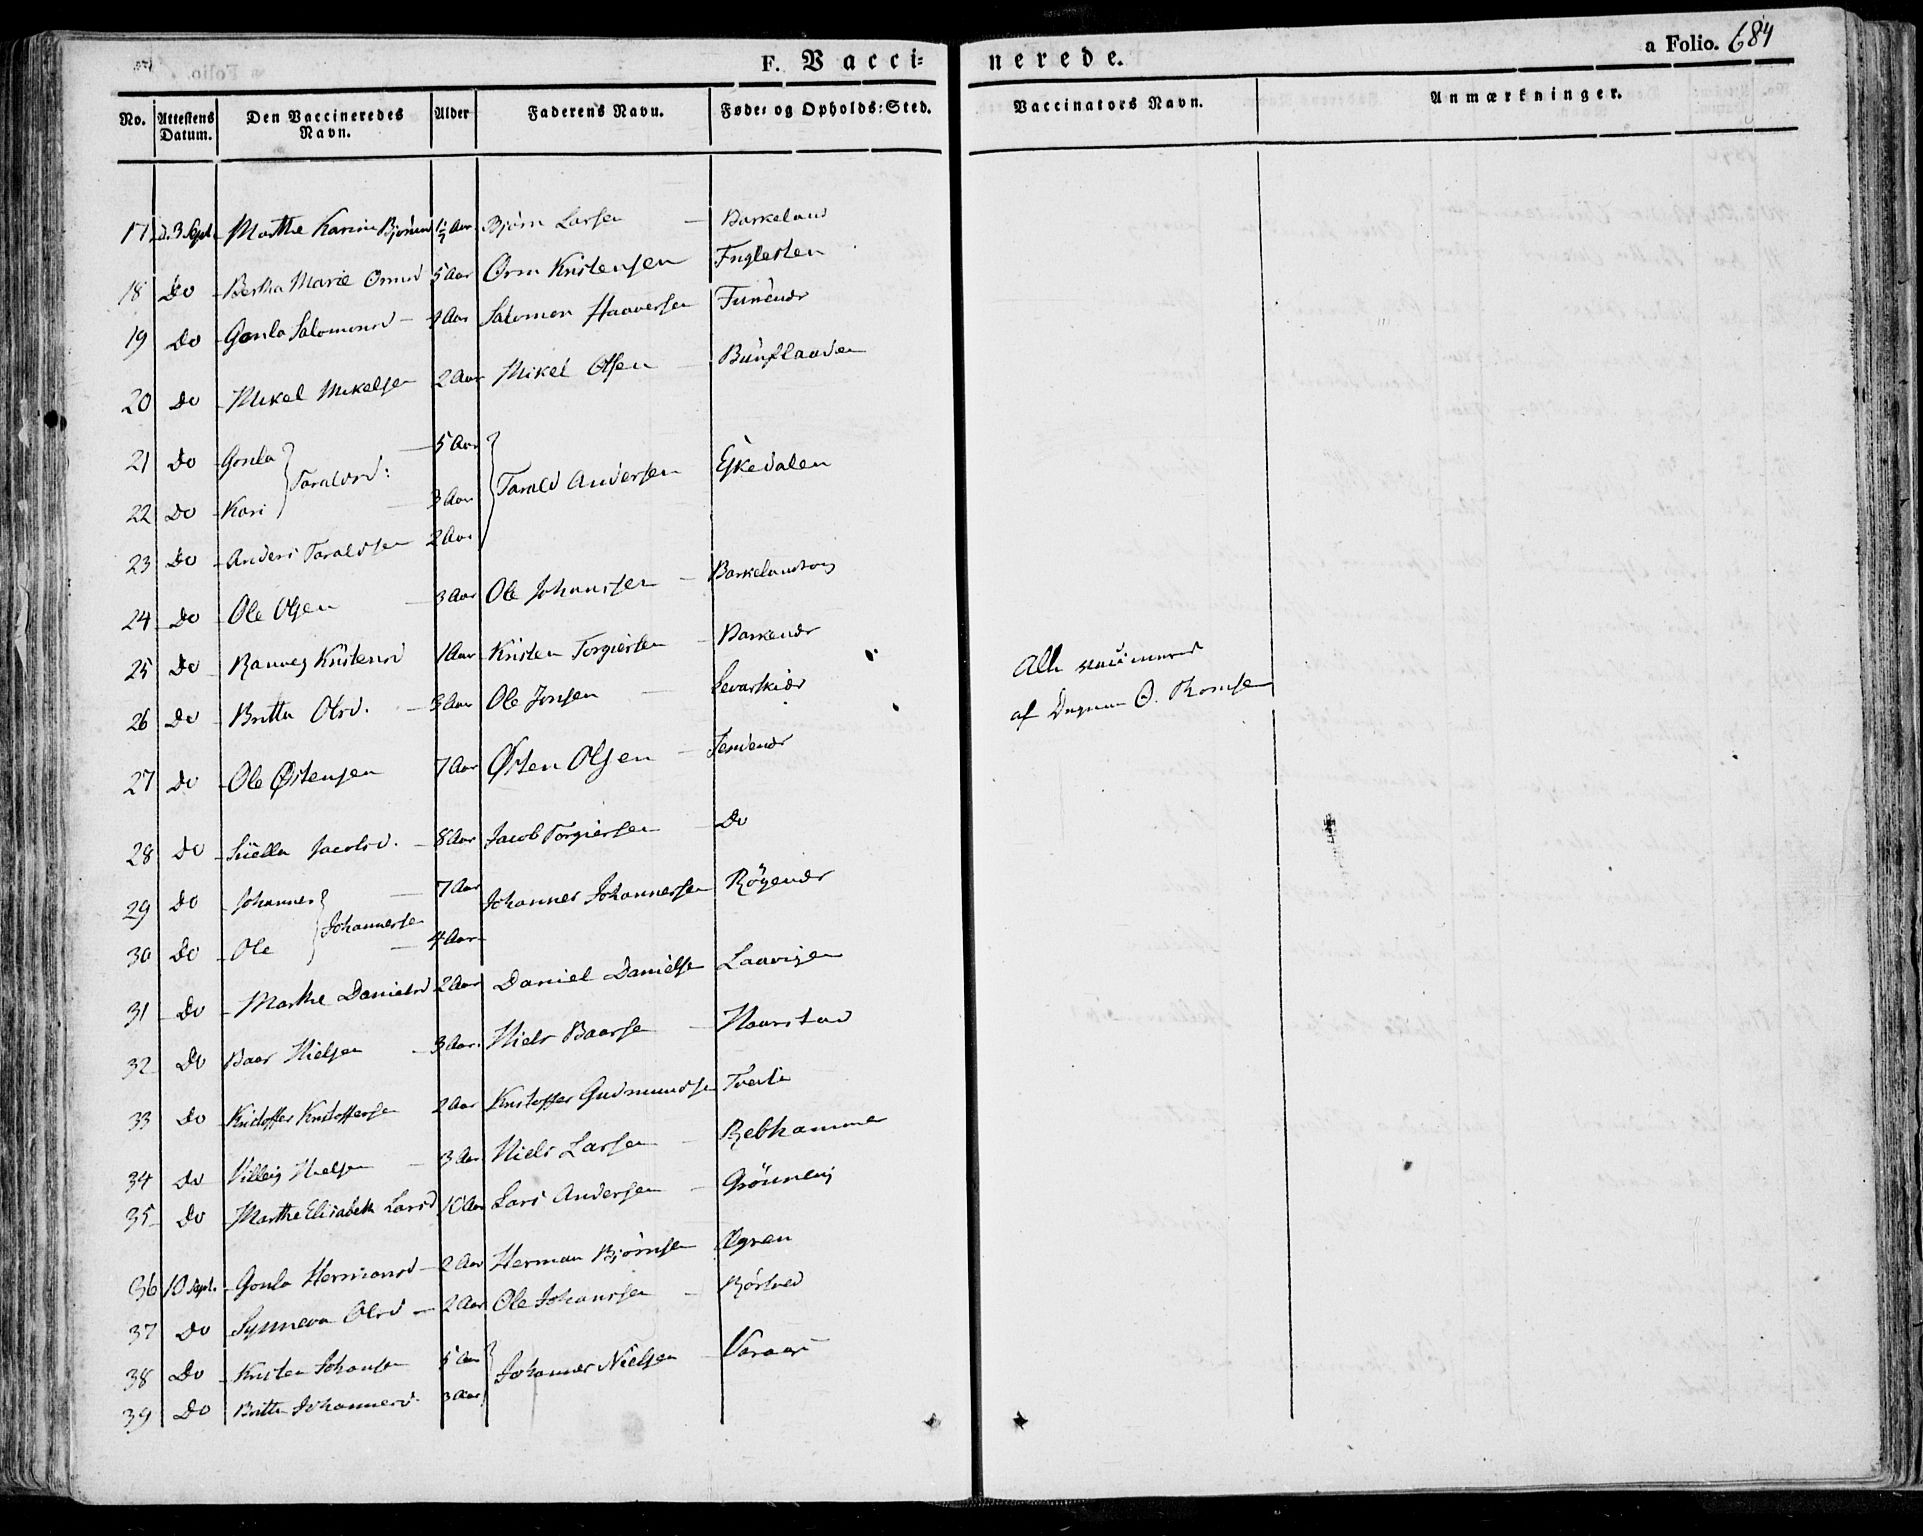 F. Vacci=
nerede.
a Folio. 684
No. Attestens Datum. Den Vaccineredes Navn. Alder Faderens Navn. Føde= og Opholds=Sted. Vaccinators Navn. Anmærkninger.
17 d. 3 Sept. Marthe Karine Bjørnsd Aar Bjørn Larsen — Barkeland
18 Do Bertha Marie Ormsd 5 Aar Orm Kristensen Fuglesten
19 Do Gonla Salomonsd — 4 Aar Salomon Haaversen
20 Do Mikel Mikelsen 2 Aar Mikel Olsen — Bunflaaden
21 Do Gonla } Taraldsd: — 5 Aar } Tarald Andersen Eskedalen
22 Do Kari — 3 Aar
23 Do Anders Taraldsen 2 Aar
24 Do Ole Olsen — 3 Aar Ole Johansen —
25 Do Ranveg Kristensd 1 Aar Kristen Torgiersen —
26 Do Britta Olsd. — 3 Aar Ole Jonsen —
27 Do Ole Østensen 7 Aar Østen Olsen —
28 Do Siella Jacobsd. — 8 Aar Jacob Torgiersen — Do
29 Do Johannes } Johannesen — 7 Aar Johannes Johannessen
30 Do Ole — 4 Aar
31 Do Marthe Danielsd 2 Aar Daniel Danielsen Laavigen
32 Do Baar Nielsen — 3 Aar. Niels Baarsen — Haarstad
33 Do Kristoffer Kristoffersen 2 Aar Kristoffer Gudmundsen Tveita
34 Do Villeig Nielsen — 3 Aar Niels Larsen — Rebhammer
35 Do Marthe Elisabeth Larsd 10 Aar Lars Andersen — Grønneng
36 10 Sept. Gonla Hermansd — 2 Aar Herman Bjørnsen Øgren
37 Do Synneva Olsd — 2 Aar Ole Johansen — Børtved
38 Do Kristen Johansen 5 Aar } Johannes Nielsen Varaas
39 Do Britta Johannesd. 3 Aar
Alle vaccinered
af O. Thomsen